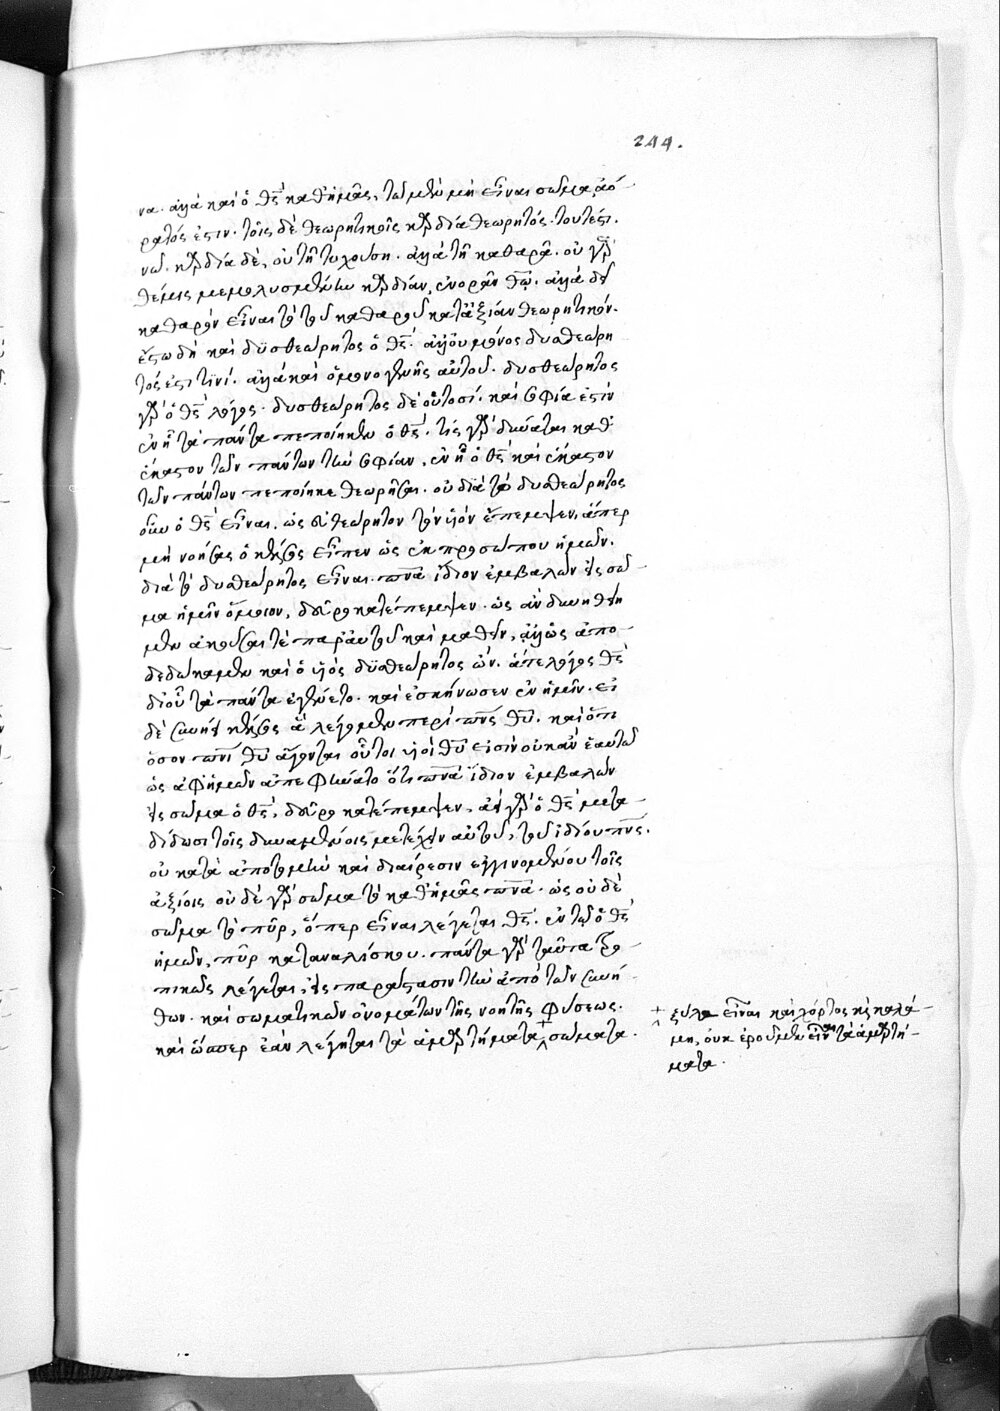 244.
να. ἀλλὰ καὶ ὁ θς̅ καθ' ἡμᾶς, τῶ μὲν μὴ εἶναι σῶμα, ἀό-
ρατός ἐστιν. τοῖς δὲ θεωρητικοῖς καρδία θεωρητός. τουτέστι
νῶ. καρδία δὲ, οὐ τῆ τυχούση. ἀλλὰ τῆ καθαρᾶ. οὐ γὰρ
θέμις μεμολυσμένην καρδίαν, ἐνορᾶν θω̅. ἀλλὰ δεῖ
καθαρὸν εἶναι τὸ τοῦ καθαροῦ κατ' ἀξίαν θεωρητικόν.
ἔστω δὴ καὶ δϋσθεώρητος ὁ θς̅. ἀλλ' οὐ μόνος δυσθεώρη
τός ἐστί τϊνί. ἀλλὰ καὶ ὁ μονογενὴς αὐτοῦ. δυσθεώρητος
γὰρ ὁ θς̅ λόγος. δυσθεώρητος δὲ οὑτοσί. καὶ σοφία ἐστὶν
ἐν ἧ τὰ πάντα πεποίηκεν ὁ θς̅. τίς γὰρ δύναται καθ'
ἕκαστον τῶν πάντων τὴν σοφίαν, ἐν ἧ ὁ θς̅ καὶ ἕκαστον
τῶν πάντων πεποίηκε θεωρῆσαι. οὐ διὰ τὸ δυσθεώρητος
οὖν ὁ θς̅ εἶναι, ὡς εὐθεώρητον τὸν υἱὸν ἔπεμψεν, ἅπερ
μὴ νοήσας ὁ κέλσος εἶπεν ὡς ἐκ προσώπου ἡμῶν.
διὰ τὸ δυσθεώρητος εἶναι. πνα̅ ἴδιον ἐμβαλὼν εἰς σῶ-
μα ἡμῖν ὅμοιον, δεῦρο κατέπεμψεν. ὡς ἂν δυνηθείη
μεν ἀκοῦσαί τε παρ' αὐτοῦ καὶ μαθεῖν, ἀλλ' ὡς ἀπο-
δεδώκαμεν καὶ ὁ υἱὸς δϋσθεώρητος ὢν. ἅτε λόγος θς̅
δι' οὗ τὰ πάντα ἐγένετο. καὶ ἐσκήνωσεν ἐν ἡμῖν. εἰ
δὲ συνίει κέλσος ἃ λέγομεν περὶ πνς̅ θυ̅. καὶ ὅτι
ὅσοι πνι̅ θυ̅ ἄγονται οὗτοι υἱοὶ θυ̅ εἰσὶν οὐκ ἂν ἑαυτῶ
ὡς ἀφ' ἡμῶν ἀπεφκίνατο ὅτι πνα̅ ἴδιον ἐμβαλὼν
εἰς σῶμα ὁ θς̅, δεῦρο κατέπεμψεν. ἀεὶ γὰρ ὁ θς̅ μετα-
δίδωσι τοῖς δυναμένοις μετέχειν αὐτοῦ, τοῦ ἰδίου πνς̅.
οὐ κατὰ ἀποτομὴν καὶ διαίρεσιν ἐγγινομένου τοῖς
ἀξίοις οὐδὲ γὰρ σῶμα τὸ καθ' ἡμᾶς πνα̅. ὡς οὐδὲ
σῶμα τὸ πῦρ, ὅπερ εἶναι λέγεται θς̅. ἐν τῶ ὁ θς̅
ἡμῶν, πῦρ καταναλίσκον. πάντα γὰρ ταῦτα τρο-
πικῶς λέγεται, εἰς παράστασιν τὴν ἀπὸ τῶν συνή-
θων. καὶ σωματικῶν ὀνομάτων τῆς νοητῆς φύσεως.
καὶ ὥσπερ ἐὰν λέγηται τὰ ἁμαρτήματα, σώματα.
+ ξύλα εἶναι καὶ χόρτος κὶ καλά-
μη, οὐκ ἐροῦμεν εἶναι τὰ ἁμαρτή-
ματα.